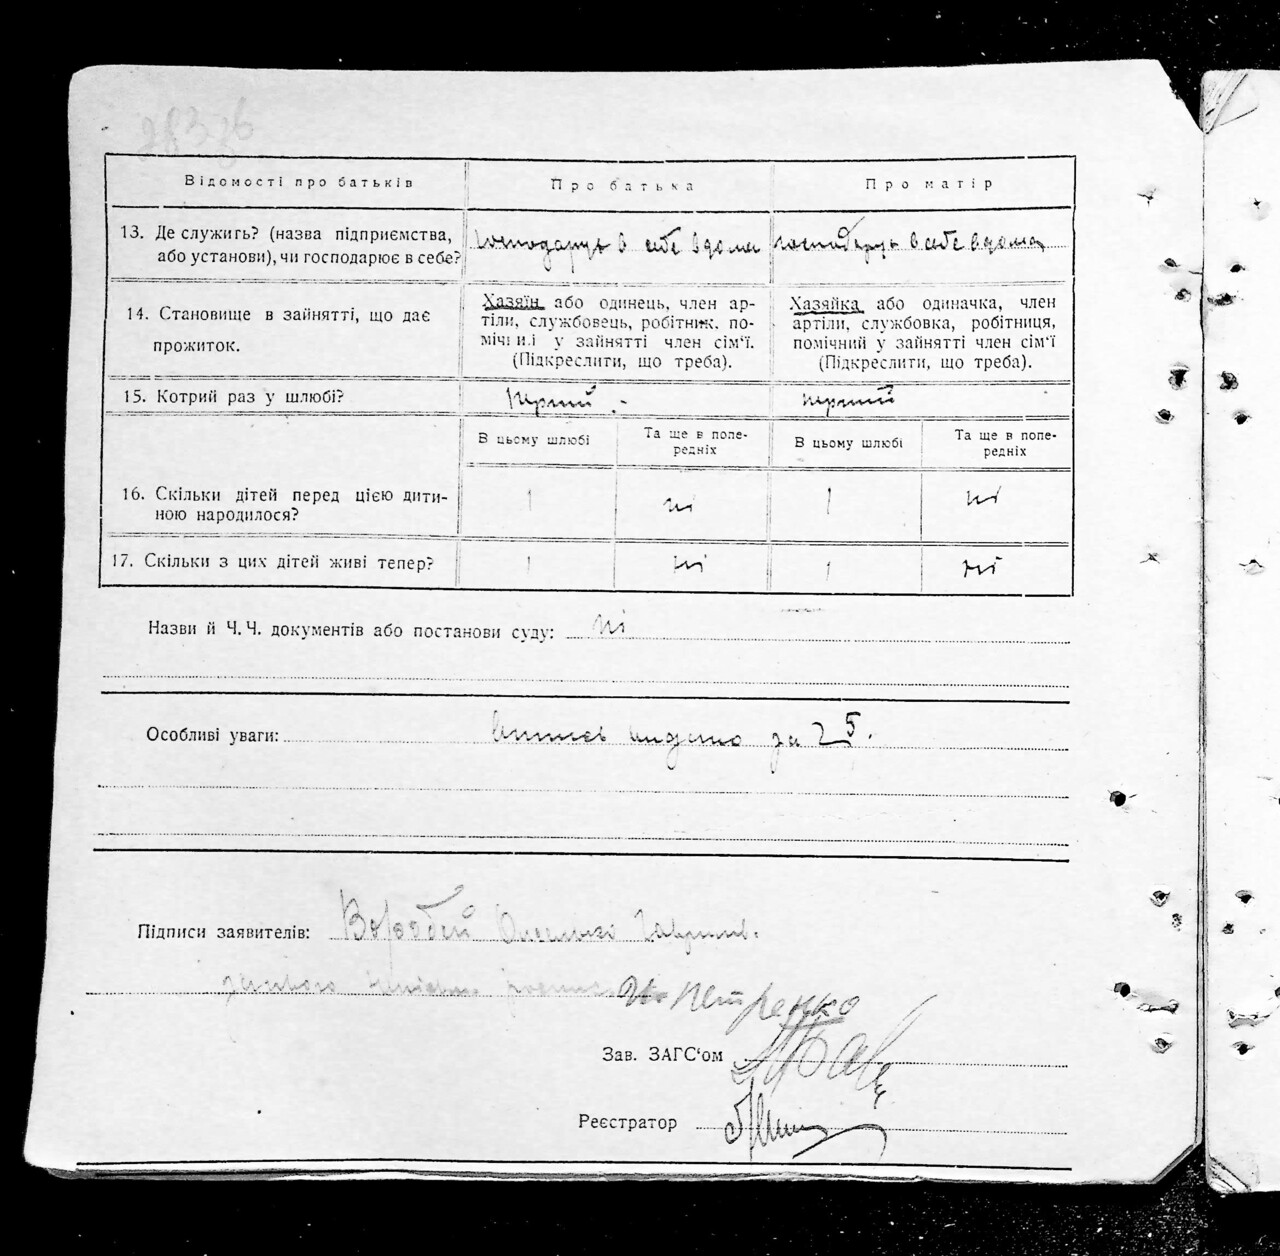 28336
Відомості про батьків
Про батька
Про матір
13. Де служить? (назва підприємства, або установи), чи господарює в себе?
господарує в себе вдома
господарує в себе вдома
14. Становище в зайнятті, що дає прожиток.
Хазяїн або одинець, член ар-
тіли, службовець, робітник, по-
мічний у зайнятті член сім'ї.
(Підкреслити, що треба).
Хазяйка або одиначка, член
артіли, службовка, робітниця,
помічний у зайнятті член сім'ї
(Підкреслити, що треба).
15. Котрий раз у шлюбі?
перший
перший
В цьому шлюбі
Та ще в попе-
редніх
В цьому шлюбі
Та ще в попе-
редніх
16. Скільки дітей перед цією дити-
ною народилося?
1
ні
1
ні
17. Скільки з цих дітей живі тепер?
1
ні
1
ні
Назви й Ч. Ч. документів або постанови суду: ні
Особливі уваги: видано за 25.
Підписи заявителів: Воробей
Петренко
Зав. ЗАГС'ом
Реєстратор